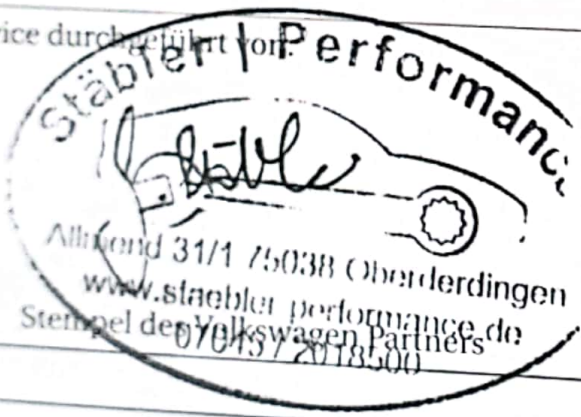 ice durchgeführt von:
Stäbler | Performance
Allmend 31/1 75038 Oberderdingen
www.staebler performance.de
Stempel des Volkswagen Partners
07045 / 2018500